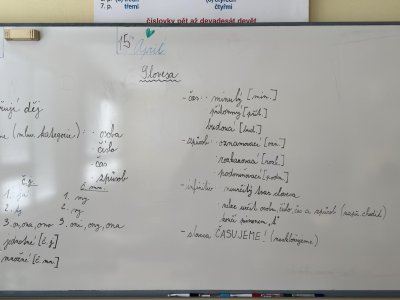 7. p. třemi
čtyřmi
číslovky pět až devadesát devět
15. April
Slovesa
děj
(mluv. kategorie): · osoba
· číslo
· čas
· způsob
č.j. č. mn.:
1. já 1. my
2. ty 2. vy
3. on, ona, ono 3. oni, ony, ona
jednotné [č. j.]
množné [č. mn.]
- čas: · minulý [min.]
přítomný [přít.]
budoucí [bud.]
- způsob: · oznamovací [ozn.]
rozkazovací [rozk.]
podmiňovací [podm.]
- infinitiv - neurčitý tvar slovesa
- nelze určit osobu, číslo, čas a způsob (např. chodit)
končí písmenem „t“
- slovesa ČASUJEME! (neskloňujeme)